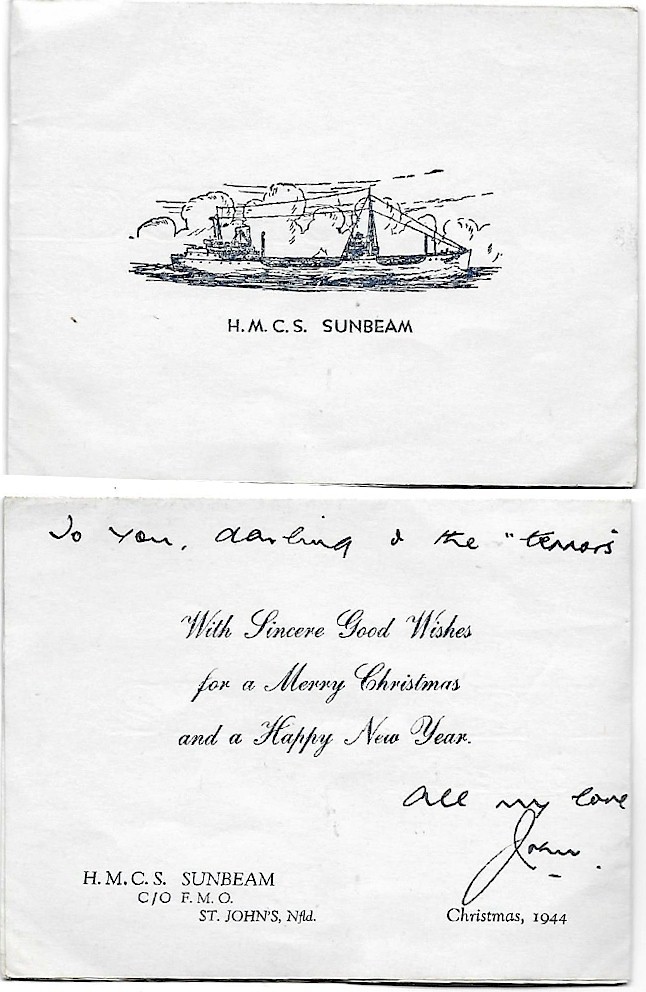 H.M.C.S. SUNBEAM
To You, darling & the "terrors"
With Sincere Good Wishes
for a Merry Christmas
and a Happy New Year.
All my love
John.
H.M.C.S. SUNBEAM
C/O F.M.O.
ST. JOHN'S, Nfld.
Christmas, 1944